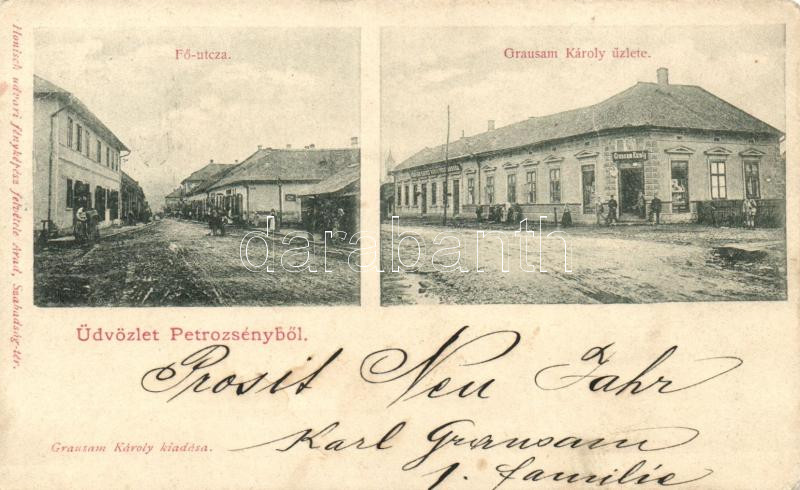 Fő-utcza.
Grausam Károly üzlete.
Grausam Károly
Honisch udvari fényképész felvétele Arad, Szabadság-tér.
darabanth
Üdvözlet Petrozsényből.
Prosit Neu Jahr
Karl Grausam
Grausam Károly kiadása.
s. familie